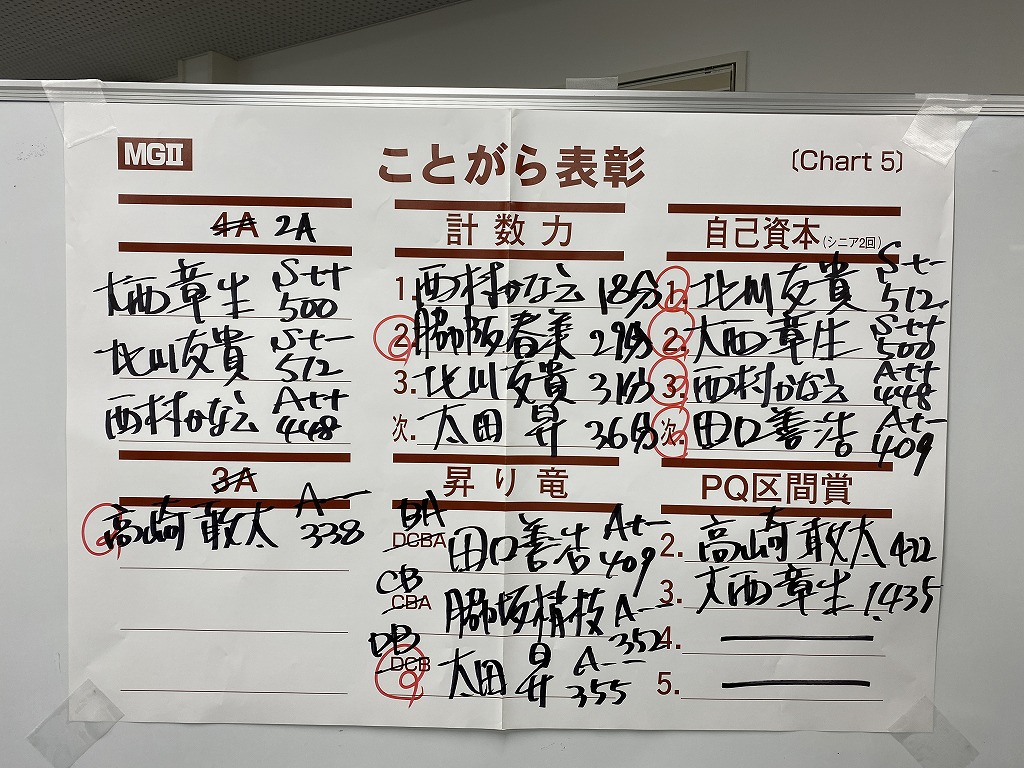 MGⅡ
ことがら表彰
〔Chart 5〕
4A 2A
大西章生 S++ 500
北川友貴 S+- 512
西村かなえ A++ 448
3A
高崎敢太 A-- 338
計数力
1. 西村かなえ 18分
2. 脇坂春美 29分
3. 北川友貴 31分
次. 太田 昇 36分
昇り竜
BA
DCBA 田口善浩 A+- 409
CB
CBA 脇坂横技 A-- 352
DB
DCB 太田 昇 A-- 355
自己資本(シニア2回)
1. 北川友貴 S+- 512
2. 大西章生 S++ 500
3. 西村かなえ A++ 448
次. 田口善浩 A+- 409
PQ区間賞
2. 高崎敢太 422
3. 大西章生 1435
4.
5.